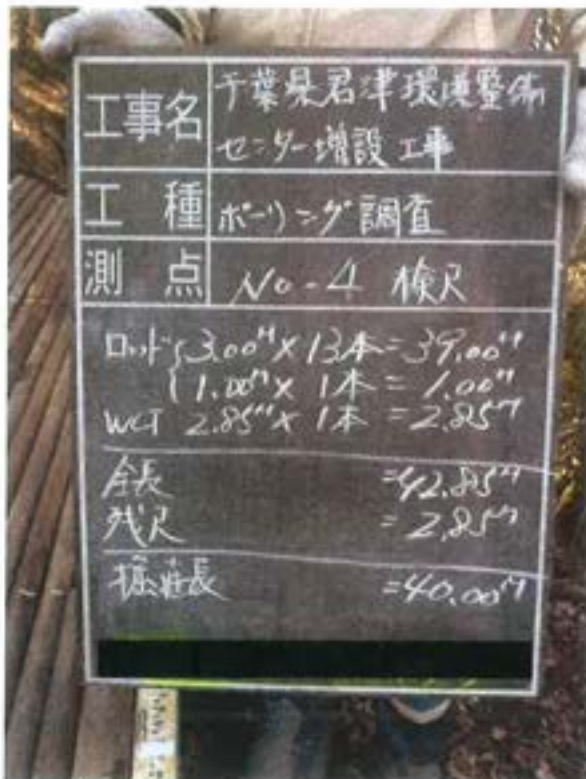 工事名 千葉県君津環境整備
センター増設工事
工種 ボーリング調査
測点 No-4 検尺
ロッド{3.00M×13本=39.00M
{1.00M×1本=1.00M
WCT 2.85M×1本=2.85M
全長 =42.85M
残尺 =2.85M
掘進長 =40.00M